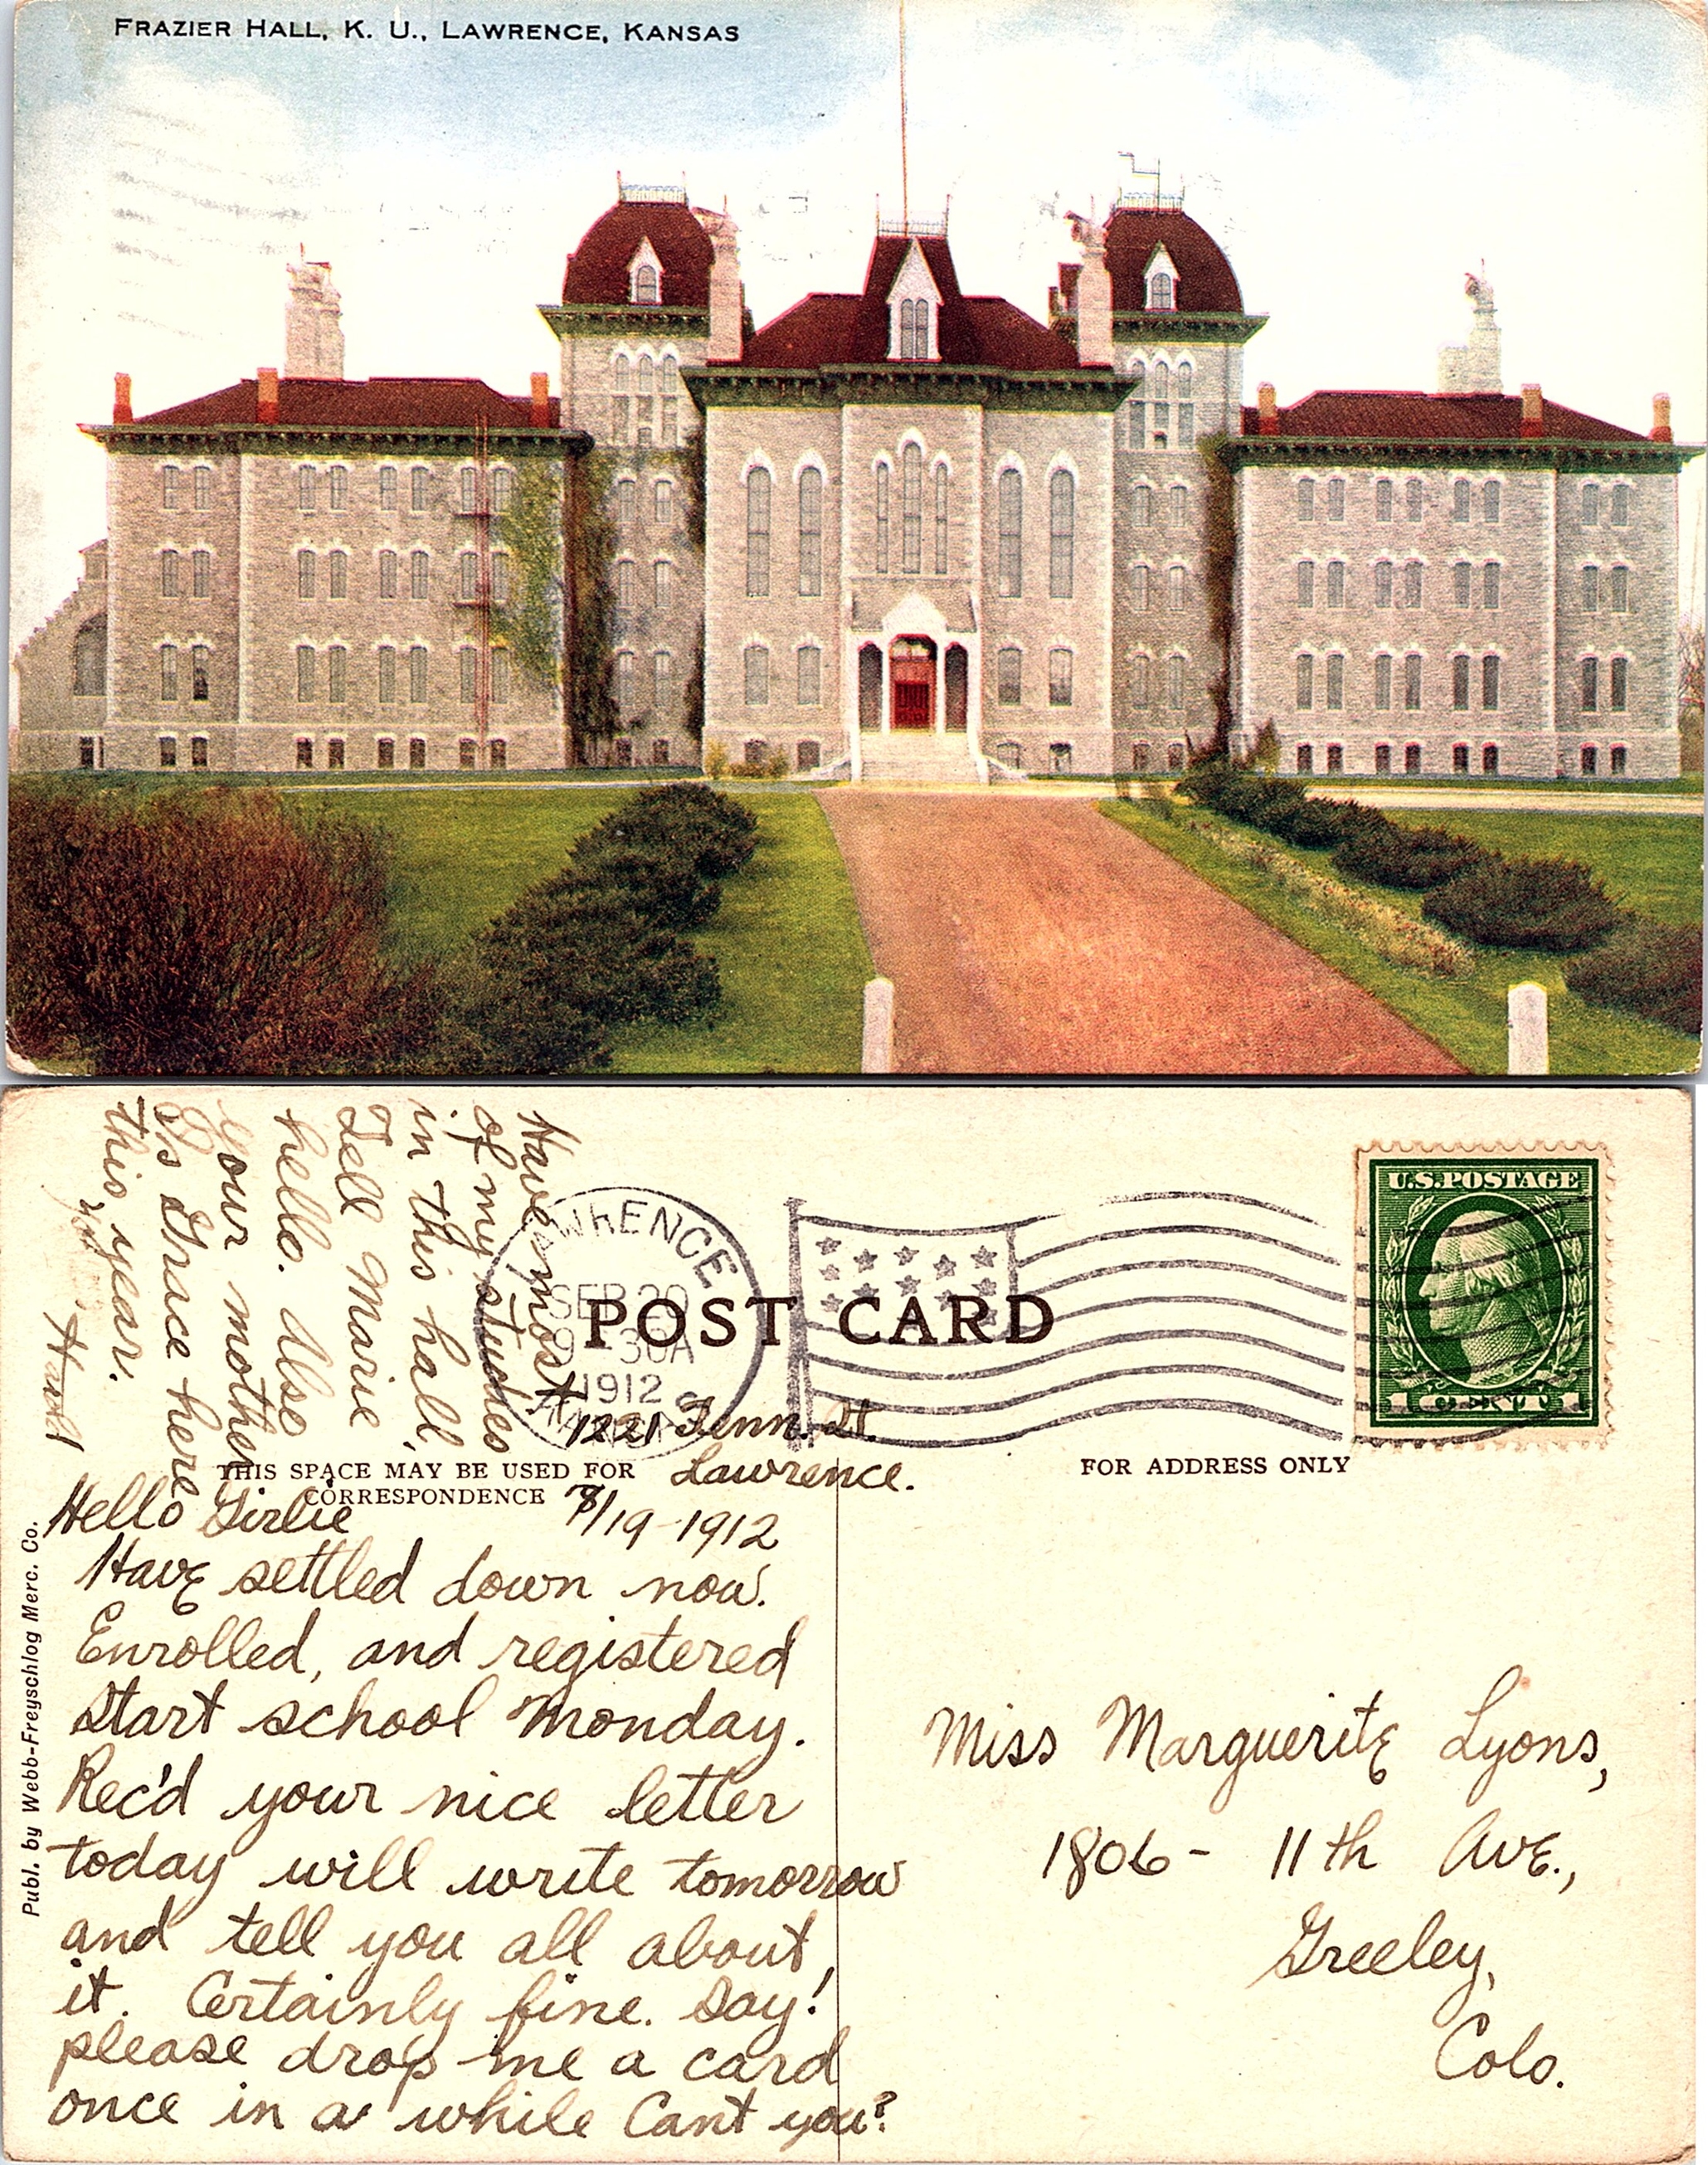 FRAZIER HALL, K. U., LAWRENCE, KANSAS
U.S.POSTAGE
1 CENT 1
LAWRENCE
SEP 20
9 - 30A
1912
POST CARD
THIS SPACE MAY BE USED FOR
CORRESPONDENCE
FOR ADDRESS ONLY
Publ. by Webb-Freyschlog Merc. Co.
1221 Tenn. St.
Lawrence.
9/19-1912
Hello Girlie
Have settled down now.
Enrolled, and registered
start school Monday.
Rec'd your nice letter
today will write tomorrow
and tell you all about
it. Certainly fine. Say!
please drop me a card
once in a while Cant you?
Have most
of my studies
in this hall.
Tell Marie
hello. Also
your mother
Is Grace here
this year.
Harold
Miss Marguerite Lyons,
1806- 11th Ave.,
Greeley,
Colo.